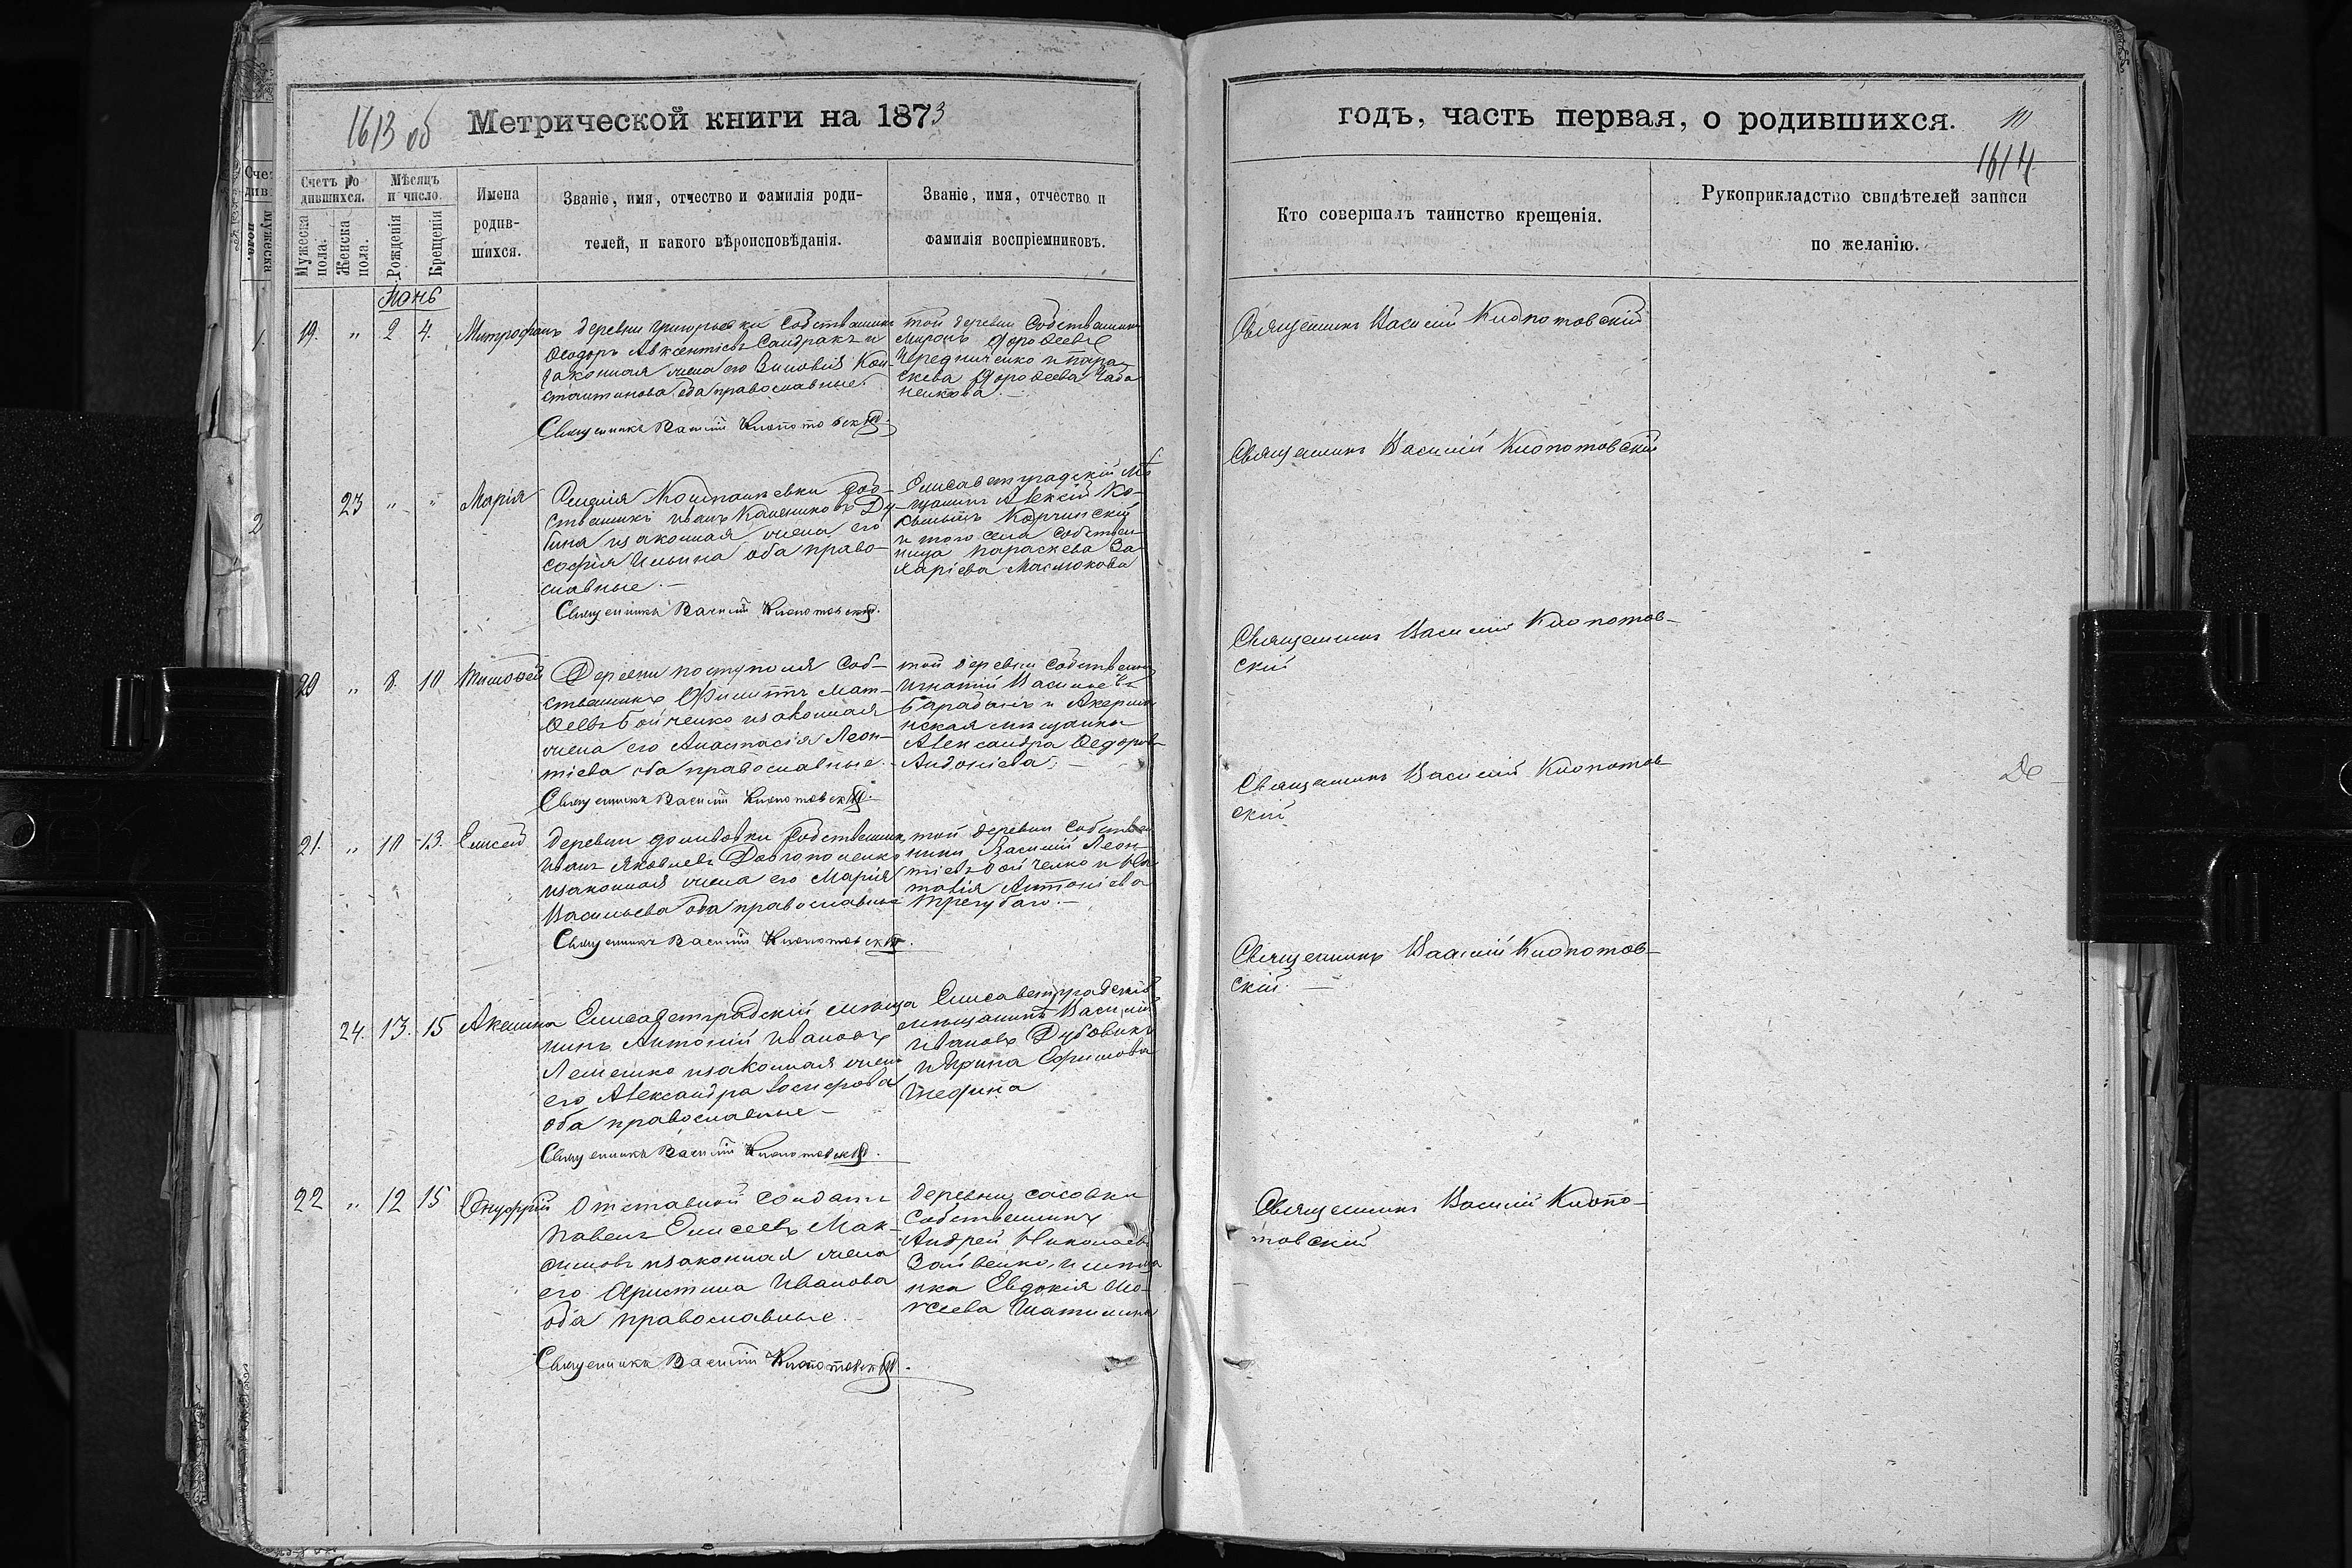 1613 об
Метрической книги на 1873
Счетъ ро-
дившихся.
Мужеска
пола.
Женска
пола.
Мѣсяцъ
и число.
Рожденія
Крещенія
Имена
родив-
шихся.
Званіе, имя, отчество и фамилія роди-
телей, и какого вѣроисповѣданія.
Званіе, имя, отчество и
фамилія воспріемниковъ.
Іюнь
19. " 2 4. Митрофанъ
деревни Григорьевки Собственникъ
Ѳеодоръ Авксентіевъ Сандракъ и
законная жена его Зиновія Кон-
стантинова оба православные.
Священникъ Василій Клопотовскій
той деревни Собственникъ
Миронъ Дороѳеевъ
Чередниченко и Пара-
скева Дороѳеева Чаба-
ненкова.
23 " " Марія
Селенія Собст-
ственникъ Иванъ Ду-
бина и законная жена его
Софія Ильина оба право-
славные.
Священникъ Василій Клопотовскій.
Елисаветградскій Мѣ-
щанинъ Алексій Ко-
Корчинскій
и того села Собствен-
ница Параскева За-
харіева Маслюкова
20 " 8. 10 Тимоѳей
Деревни Соб-
ственникъ Филиппъ Мат-
ѳеевъ Бойченко и законная
жена его Анастасія Леон-
тіева оба православные.
Священникъ Василій Клопотовскій.
той деревни Собственникъ
Игнатій Васильевъ
Барабанъ и Акерман-
ская мѣщанка
Александра Ѳедорова
Андоніева.
21. " 10 13. Елисей
деревни Собственникъ
Иванъ Яковлевъ Долгополенко
и законная жена его Марія
Васильева оба православные
Священникъ Василій Клопотовскій.
той деревни Собствен-
ники Василій Леон-
тіевъ Бойченко и На-
талія Антоніева
Трегубаго.
24. 13. 15 Акилина
Елисаветградскій мѣща-
нинъ Антоній Ивановъ
Лещенко и законная жена
его Александра Іосифова
оба православные
Священникъ Василій Клопотовскій.
Елисаветградскій
мѣщанинъ Василій
Ивановъ Дубовикъ
и Ирина Ефимова
22 " 12 15 Онуфрій
Отставной Солдатъ
Павелъ Елисеевъ Мак-
симовъ и законная жена
его Христина Иванова
оба православные.
Священникъ Василій Клопотовскій.
деревни Сасовки
Собственникъ
Андрей Николаевъ
Зайвенко, и мѣщан-
ка Евдокія Мо-
ѵсеева
годъ, часть первая, о родившихся.
10
1614
Кто совершалъ таинство крещенія.
Рукоприкладство свидѣтелей записи
по желанію.
Священникъ Василій Клопотовскій
Священникъ Василій Клопотовскій
Священникъ Василій Клопотов-
скій
Священникъ Василій Клопотов-
скій
Священникъ Василій Клопотов-
скій.
Священникъ Василій Клопо-
товскій